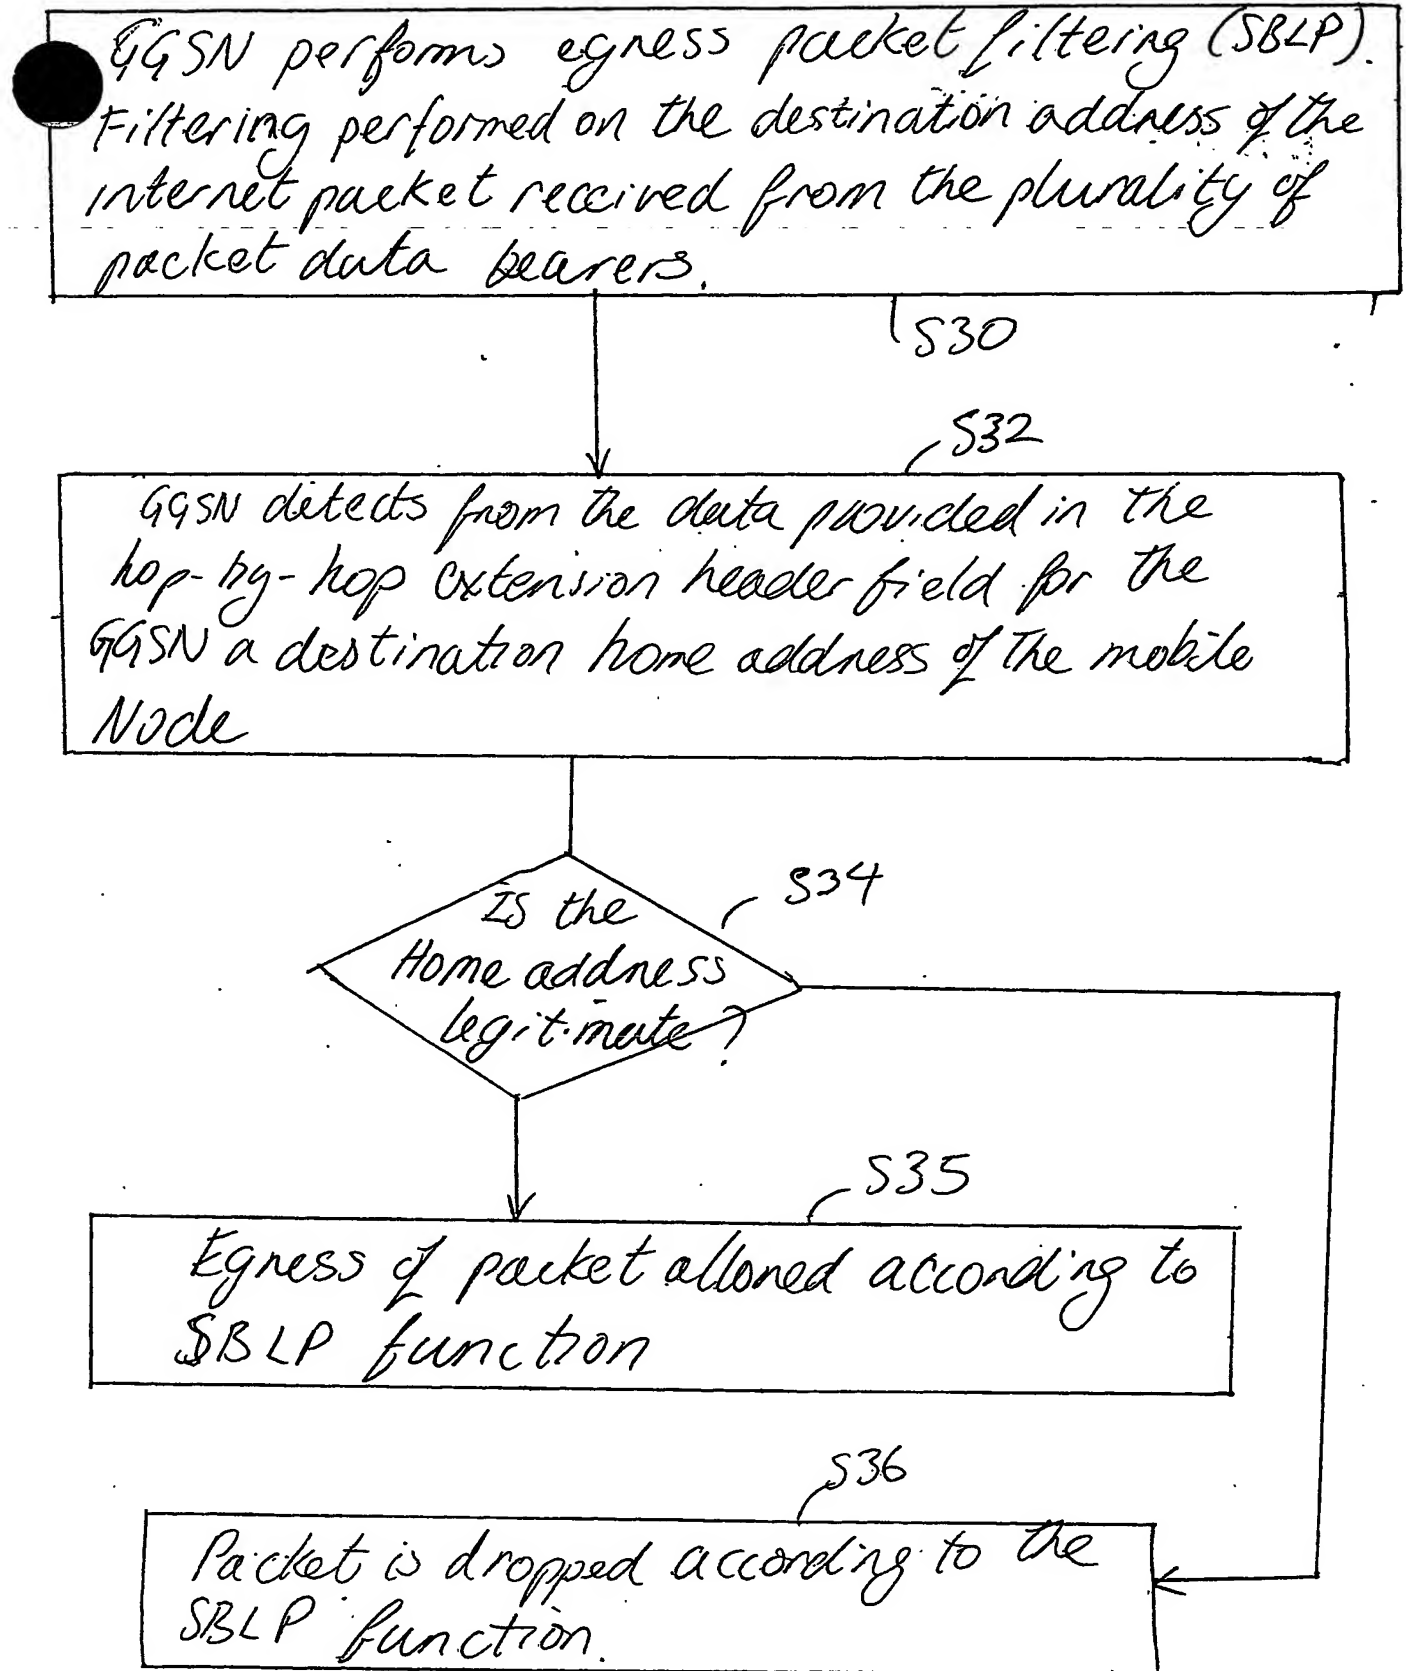 GGSN performs egress packet filtering (SBLP).
Filtering performed on the destination address of the
internet packet received from the plurality of
packet data bearers.
S30
S32
GGSN detects from the data provided in the
hop-by-hop extension header field for the
GGSN a destination home address of the mobile
Node
S34
Is the
Home address
legitimate?
S35
Egress of packet allowed according to
SBLP function
S36
Packet is dropped according to the
SBLP function.